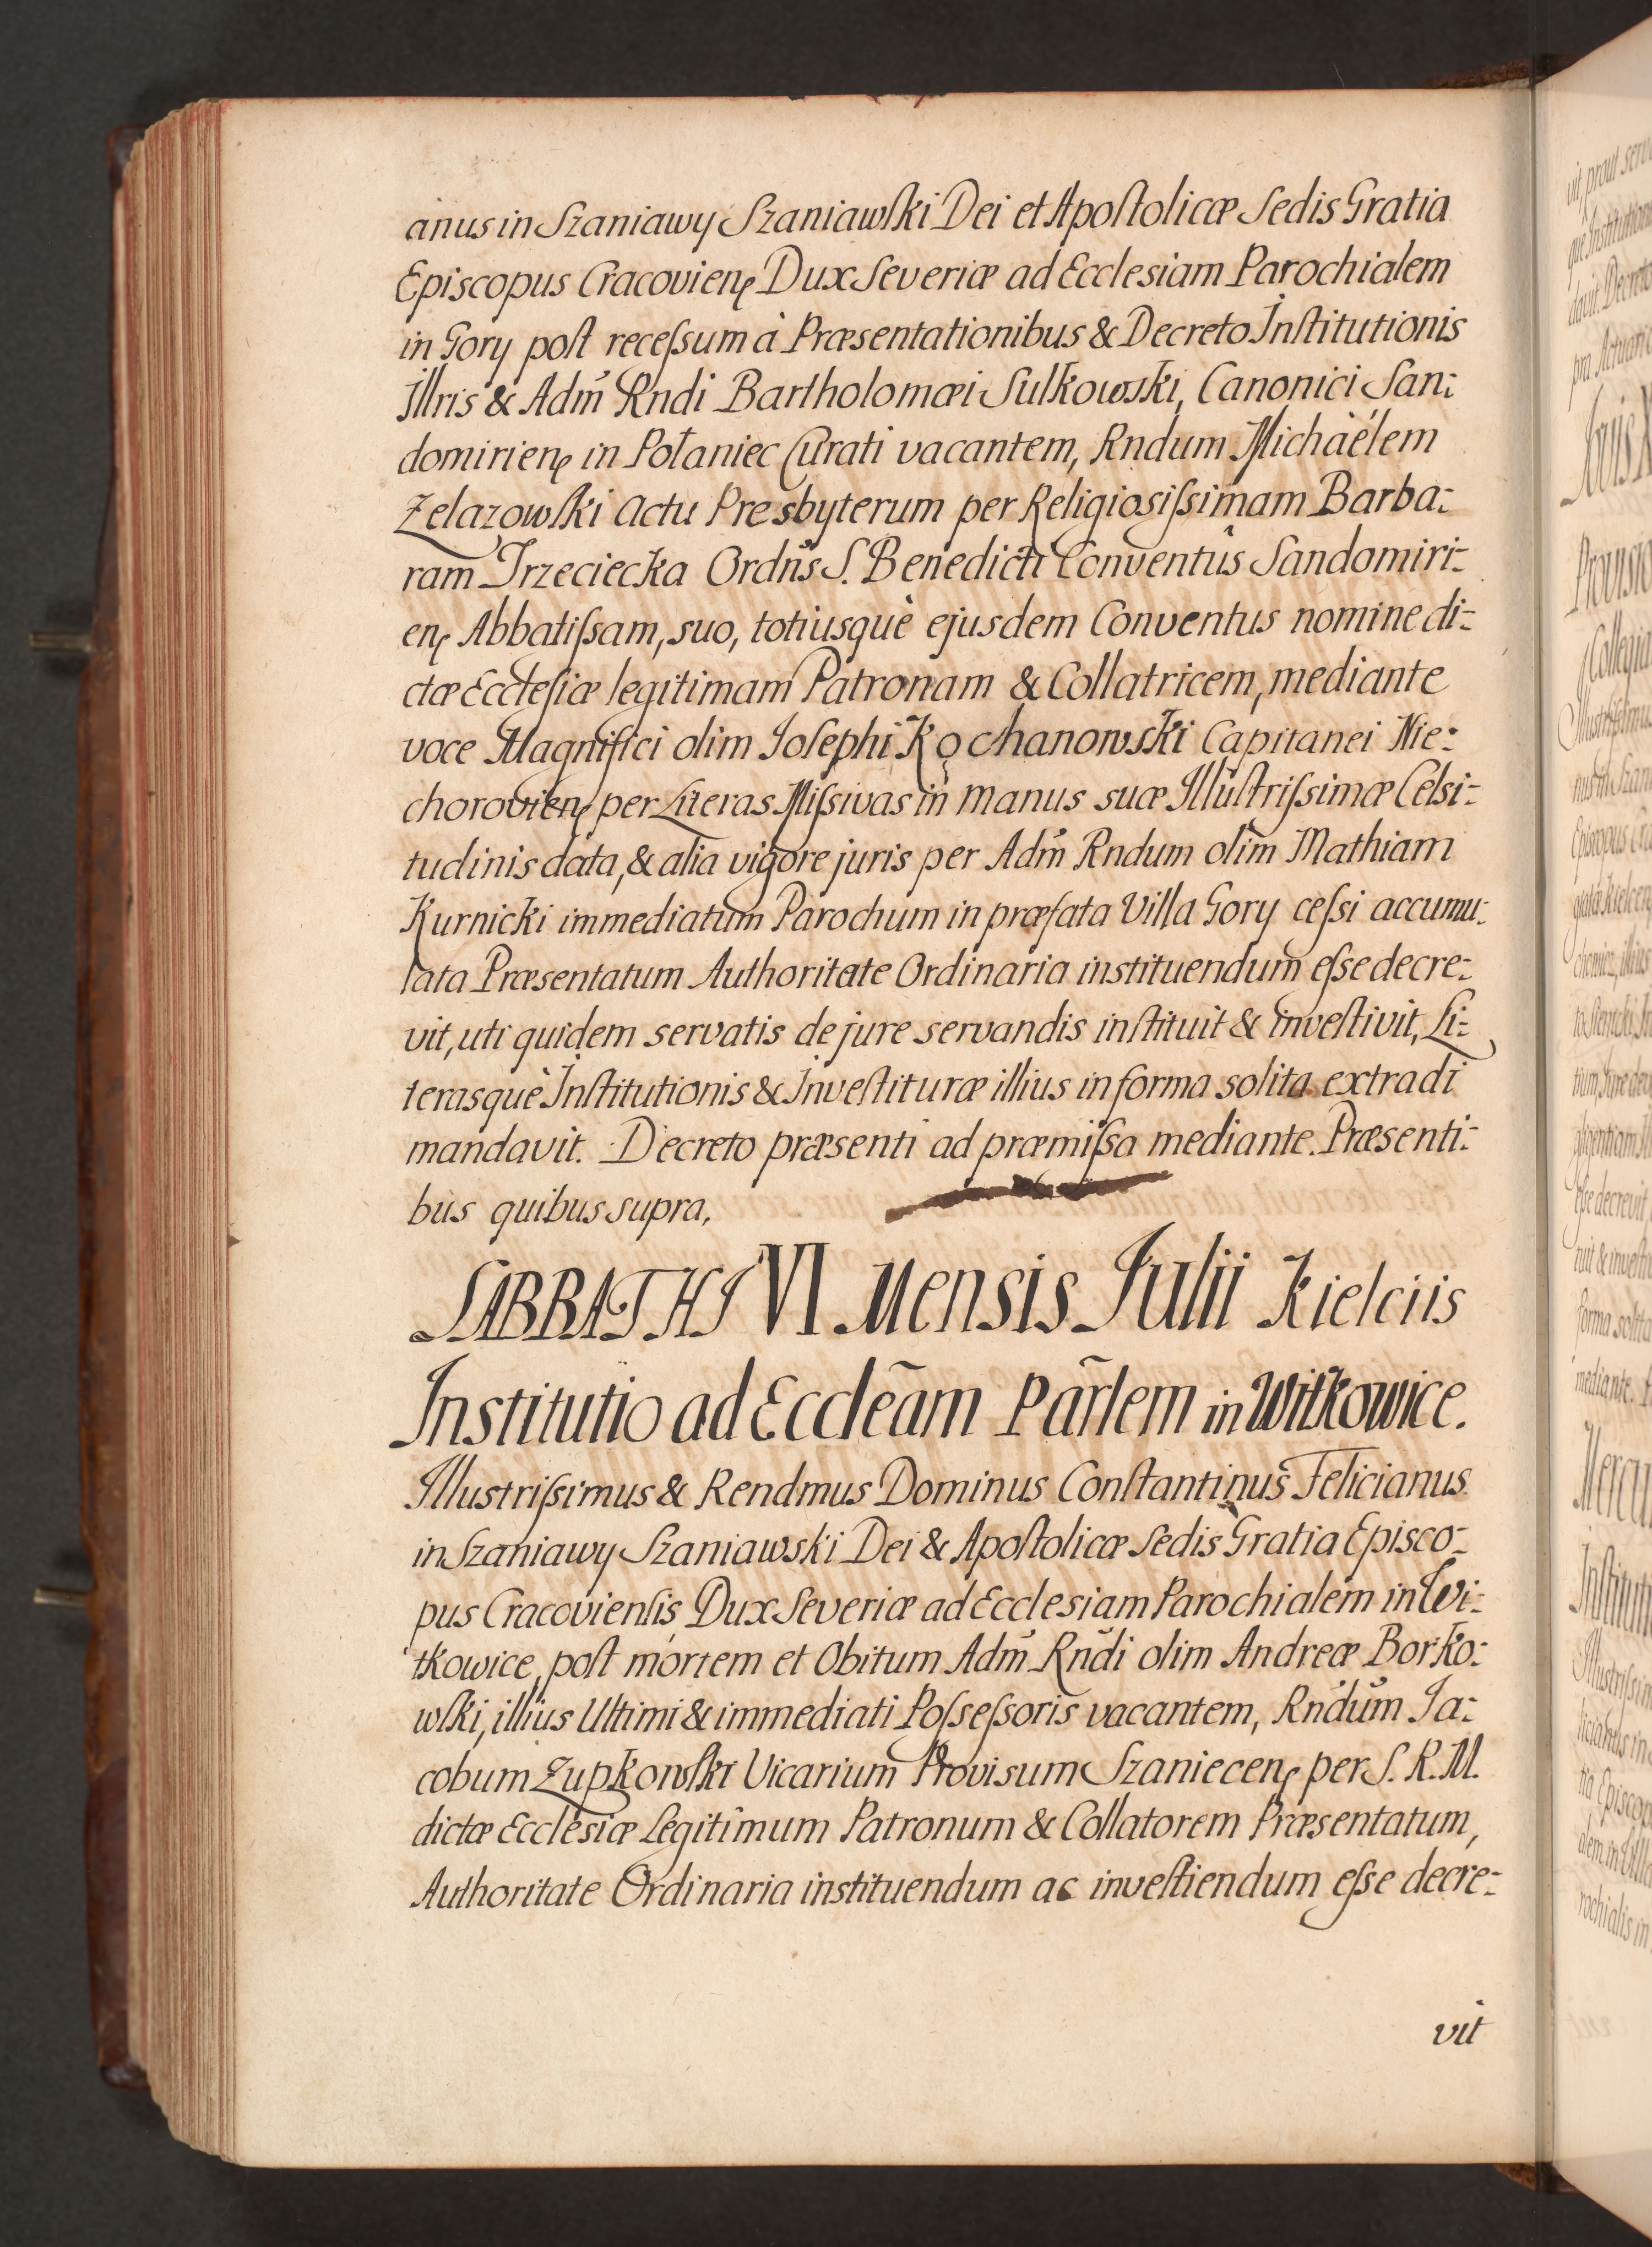 anus in Szaniawy Szaniawſki Dei et Apoſtolicæ Sedis Gratia
Episcopus Cracovienę Dux Severiæ ad Ecclesiam Parochialem
in Gory poſt receſsum à Præsentationibus & Decreto Inſtitutionis
Illris & Adm̃ Rndi Bartholomæi Sulkowski, Canonici San:
domirienę in Połaniec Curati vacantem, Rndum Michaëlem
Zelazowſki Actu Presbyterum per Religiosiſsimam Barba:
ram Trzeciecka Ordñs S. Benedicti Conventûs Sandomiri:
enę Abbatiſsam, suo, totiusquè ejusdem Conventus nomine di:
ctæ Eccleſiæ legitimam Patronam & Collatricem, mediante
voce Magnifici olim Ioſephi Kochanowski Capitanei Nie:
chorovienę per Literas Miſsivas in manus suæ Illuſtriſsimæ Celsi:
tudinis data, & alia vigore juris per Adm̃ Rndum olim Mathiam
Kurnicki immediatum Parochum in præfata Villa Gory ceſsi accumu:
lata Præsentatum Authoritate Ordinaria instituendum eſse decre:
vit, uti quidem servatis de jure servandis inſtituit & inveſtivit, Li:
terasquè Inſtitutionis & Inveſtituræ illius in forma solita extradi
mandavit. Decreto præsenti ad præmiſsa mediante. Præsenti:
bus quibus supra.
SABBATHI VI Mensis Julii Kielciis
Institutio ad Ecclẽam Pãrlem in Witkowice.
Illustriſsimus & Rendmus Dominus Conſtantinus Felicianus
in Szaniawy Szaniawski Dei & Apoſtolicæ Sedis Gratia Episco:
pus Cracovienſis, Dux Severiæ ad Ecclesiam Parochialem in Wi:
tkowice, poſt mortem et Obitum Adm̃ Rñdi olim Andreæ Borko:
wſki, illius Ultimi & immediati Poſseſsoris vacantem, Rndum Ja:
cobum Zupkowſki Vicarium Provisum Szaniecenę per S. R. M.
dictæ Ecclesiæ Legitimum Patronum & Collatorem Præsentatum,
Authoritate Ordinaria instituendum ac inveſtiendum eſse decre:
vit